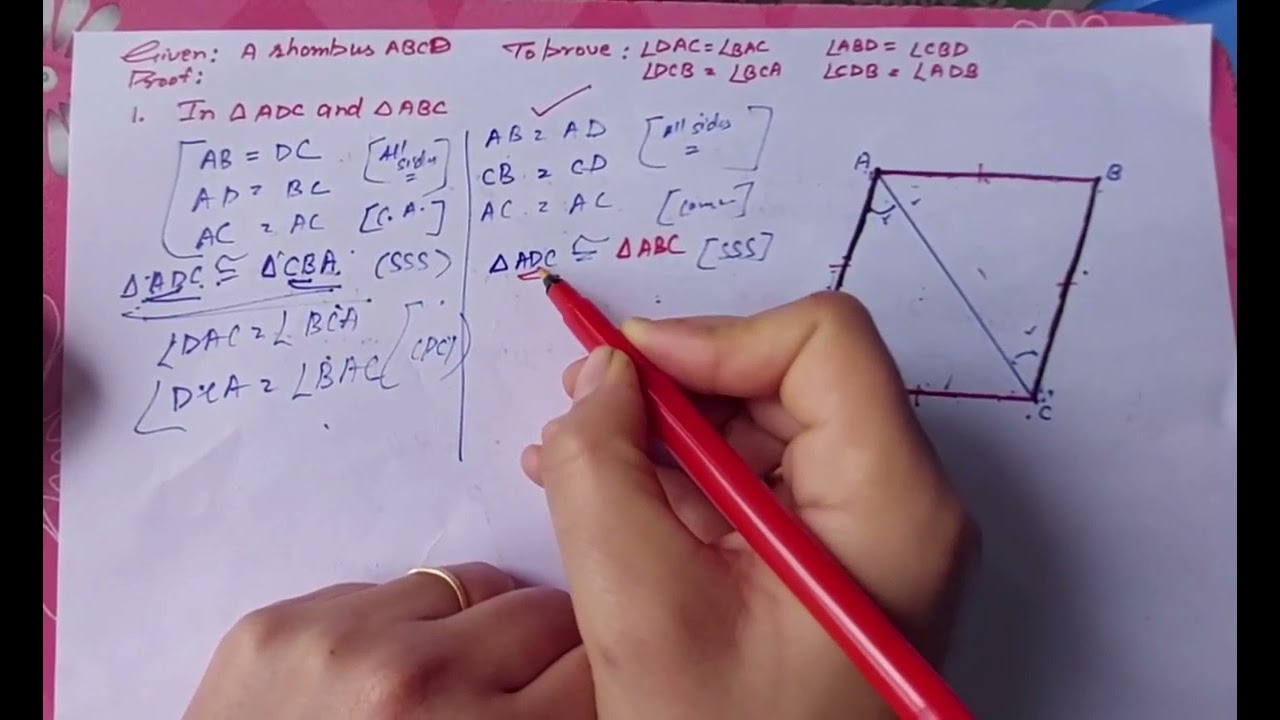 Given: A rhombus ABCD
To prove: ∠DAC = ∠BAC ∠ABD = ∠CBD
∠DCB = ∠BCA ∠CDB = ∠ADB
Proof:
1. In △ADC and △ABC
AB = DC [All sides =]
AD = BC
AC = AC [C.A.]
△ABC ≅ △CBA (SSS)
∠DAC = ∠BCA
∠DCA = ∠BAC
AB = AD [All sides =]
CB = CD
AC = AC
△ADC ≅ △ABC [SSS]
A
B
C